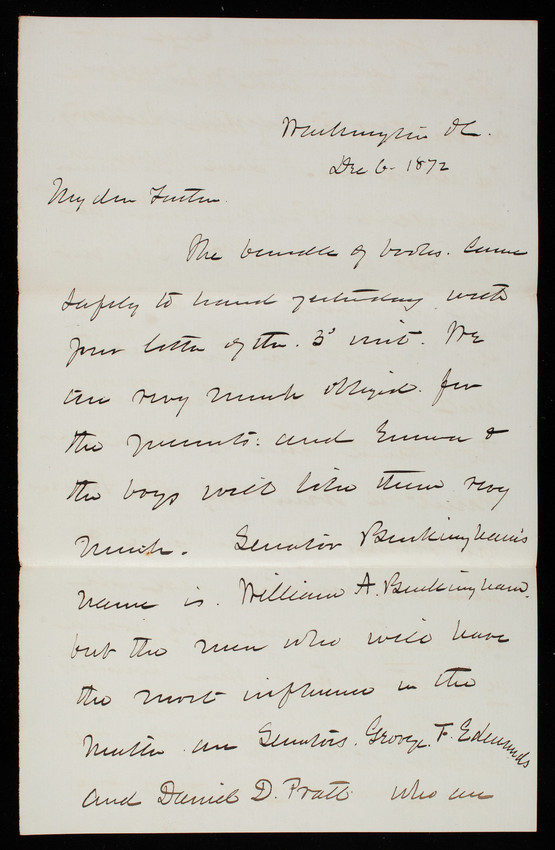 Washington DC.
Dec 6. 1872
My dear
The bundle of books. Came
safely to hand yesterday with
your letter of the. 3d inst. We
are very much obliged. for
the presents: and Emma &
the boys will like them very
much. Senator Buckingham's
name is. William A. Buckingham.
but the men who will have
the most influence in the
matter are Senators. George. F. Edmunds
and Daniel D. Pratt who are